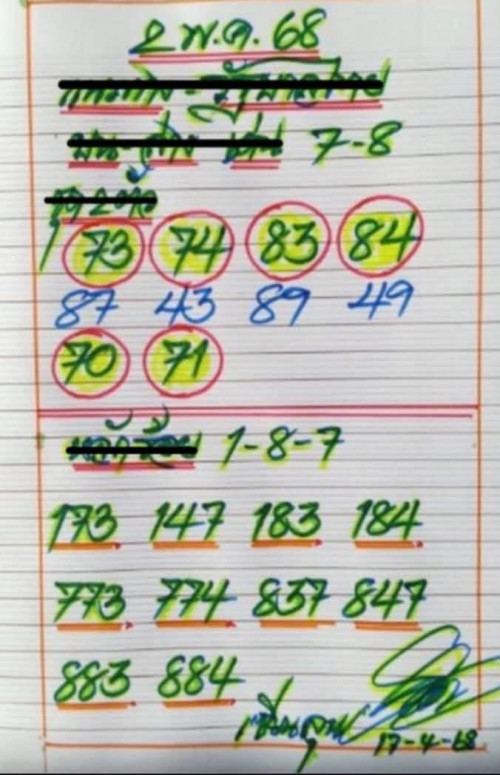 2 พ.ค. 68
7-8
73 74 83 84
87 43 89 49
70 71
1-8-7
173 147 183 184
773 774 837 847
883 884
17-4-68